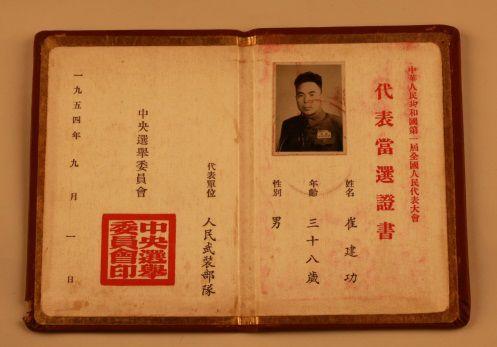 中華人民共和國第一屆全國人民代表大會
代表當選證書
姓名 崔建功
年齡 三十八歲
性別 男
代表單位 人民武裝部隊
中央選舉委員會
中央選舉
委員會印
一九五四年九月一日